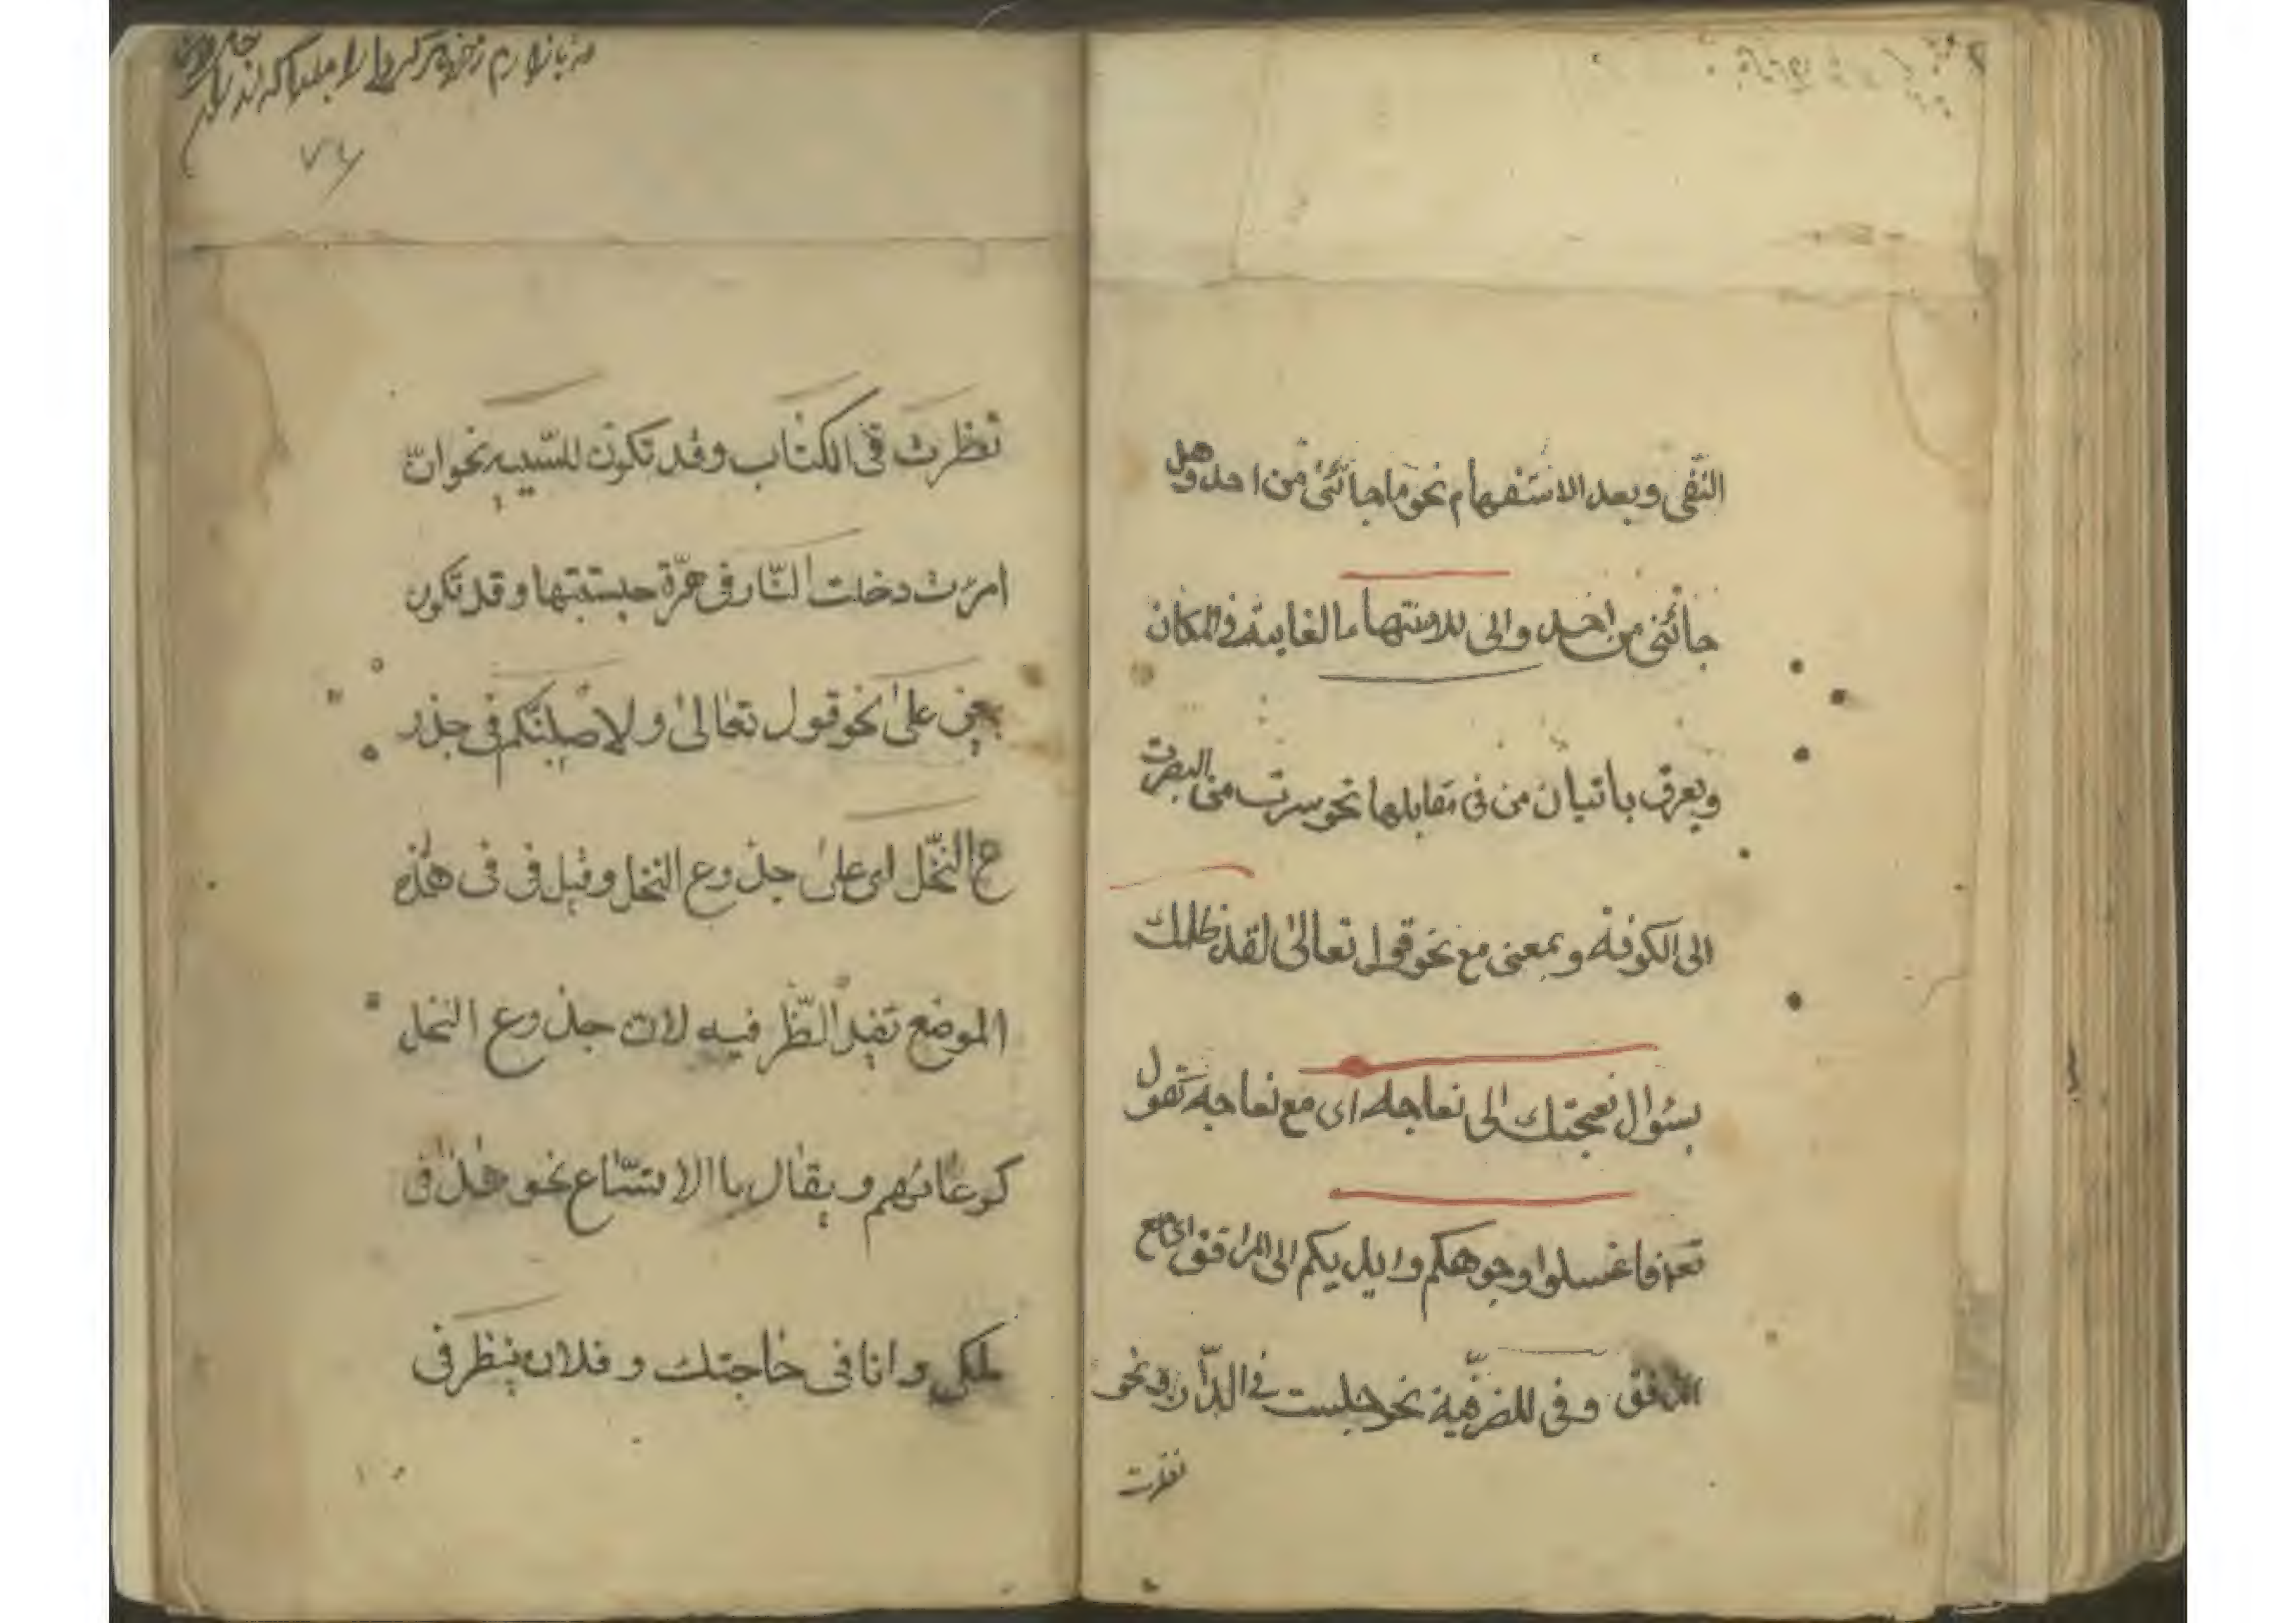 النفى وبعد الاستفهام نحو ما جائنى من احد وهل
جائنى من احد والى للانتهاء الغاية فى المكان
ويعرف باتيان من فى مقابلها نحو سرت من البصرت
الى الكوفة وبمعنى مع نحو قول تعالى لقد ظلمك
بسئوال نعجتك الى نعاجه اى مع نعاجه تقول
تعه فاغسلوا وجوهكم وايديكم الى المرافق اى مع
المرافق وفى للضرفية نحو جلست فى الدار ونحو
نظرت
نظرت فى الكتاب وقد تكون للسببيه نحو ان
امرت دخلت النار فى هرة حبستتها وقد تكون
بمعنى على نحو قول تعالى ولاصلبنكم فى جذو
ع النخل اى على جذوع النخل وقيل فى فى هذه
الموضع تفيد الظرفيه لان جذوع النخل
كوعائهم ويقال باالاتساع نحو هذا فى
ملكى وانا فى حاجتك وفلان ينظر فى